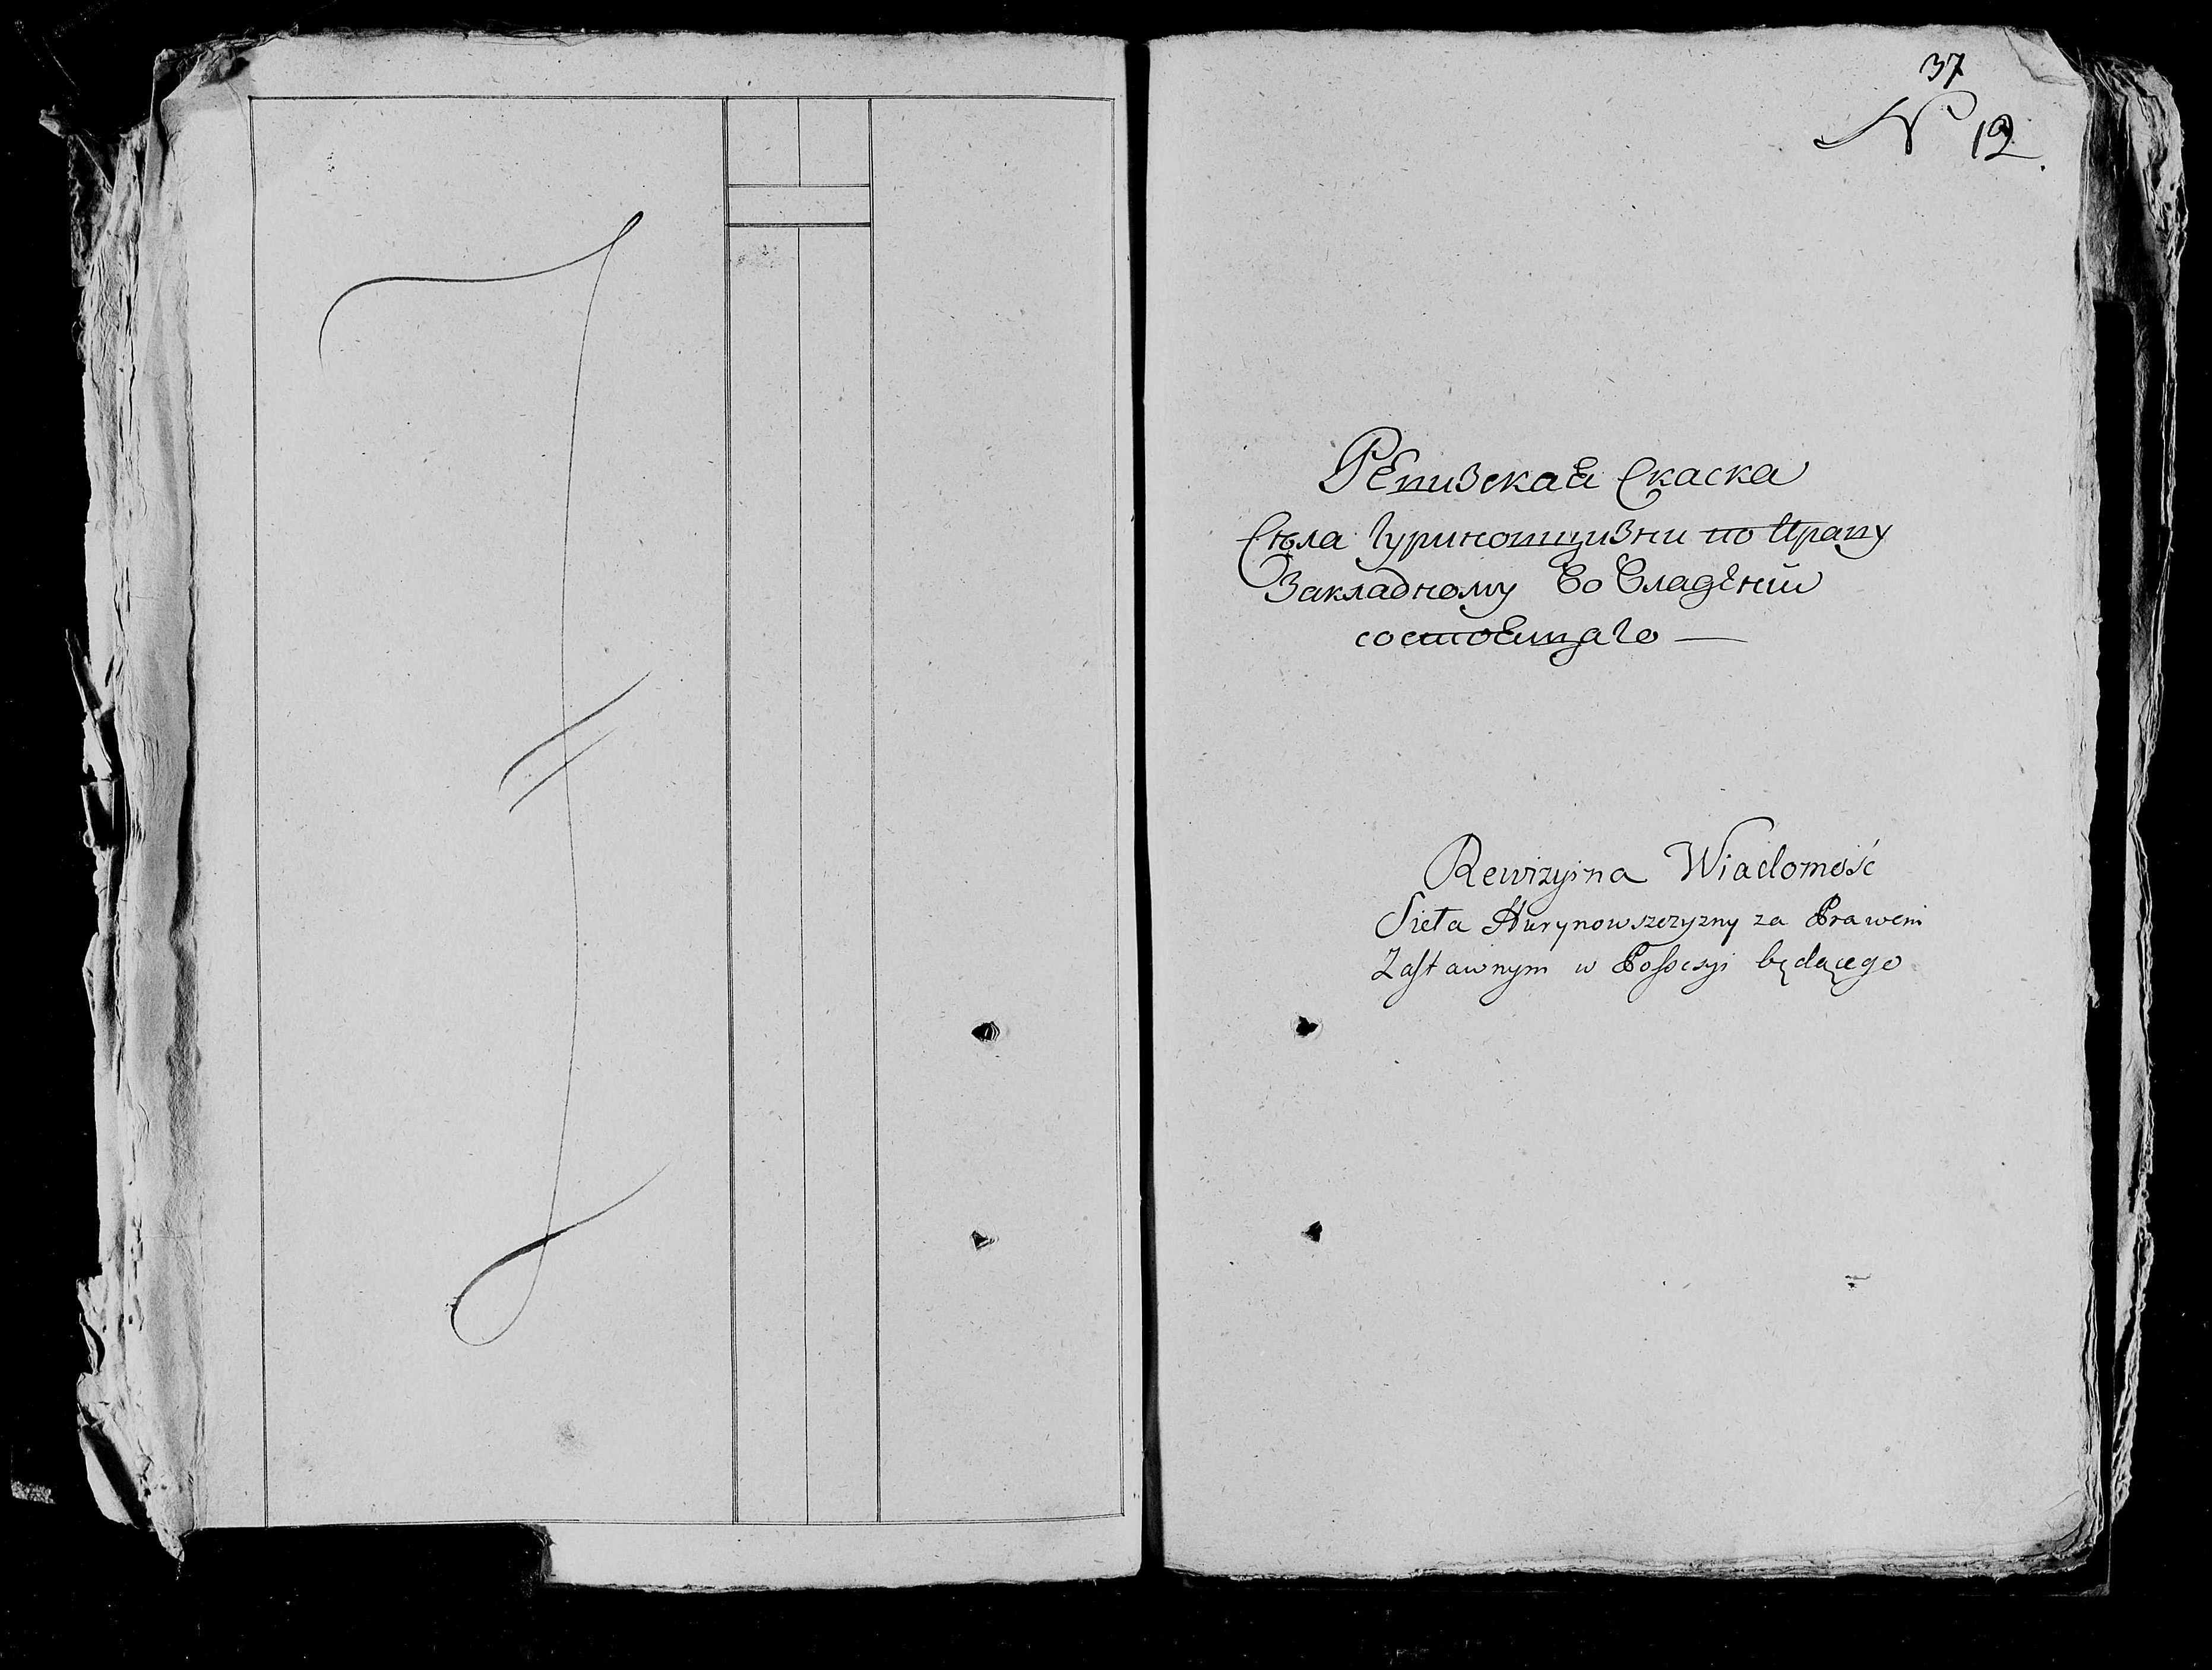 37
№ 12.
Ревизская Скаска
Сѣла Гуриновщизни по праву
Закладному во владѣнии
состоящаго —
Rewizyina Wiadomość
Sieła Hurynowszczyzny za Prawem
Zastawnym w Possesyi będącego